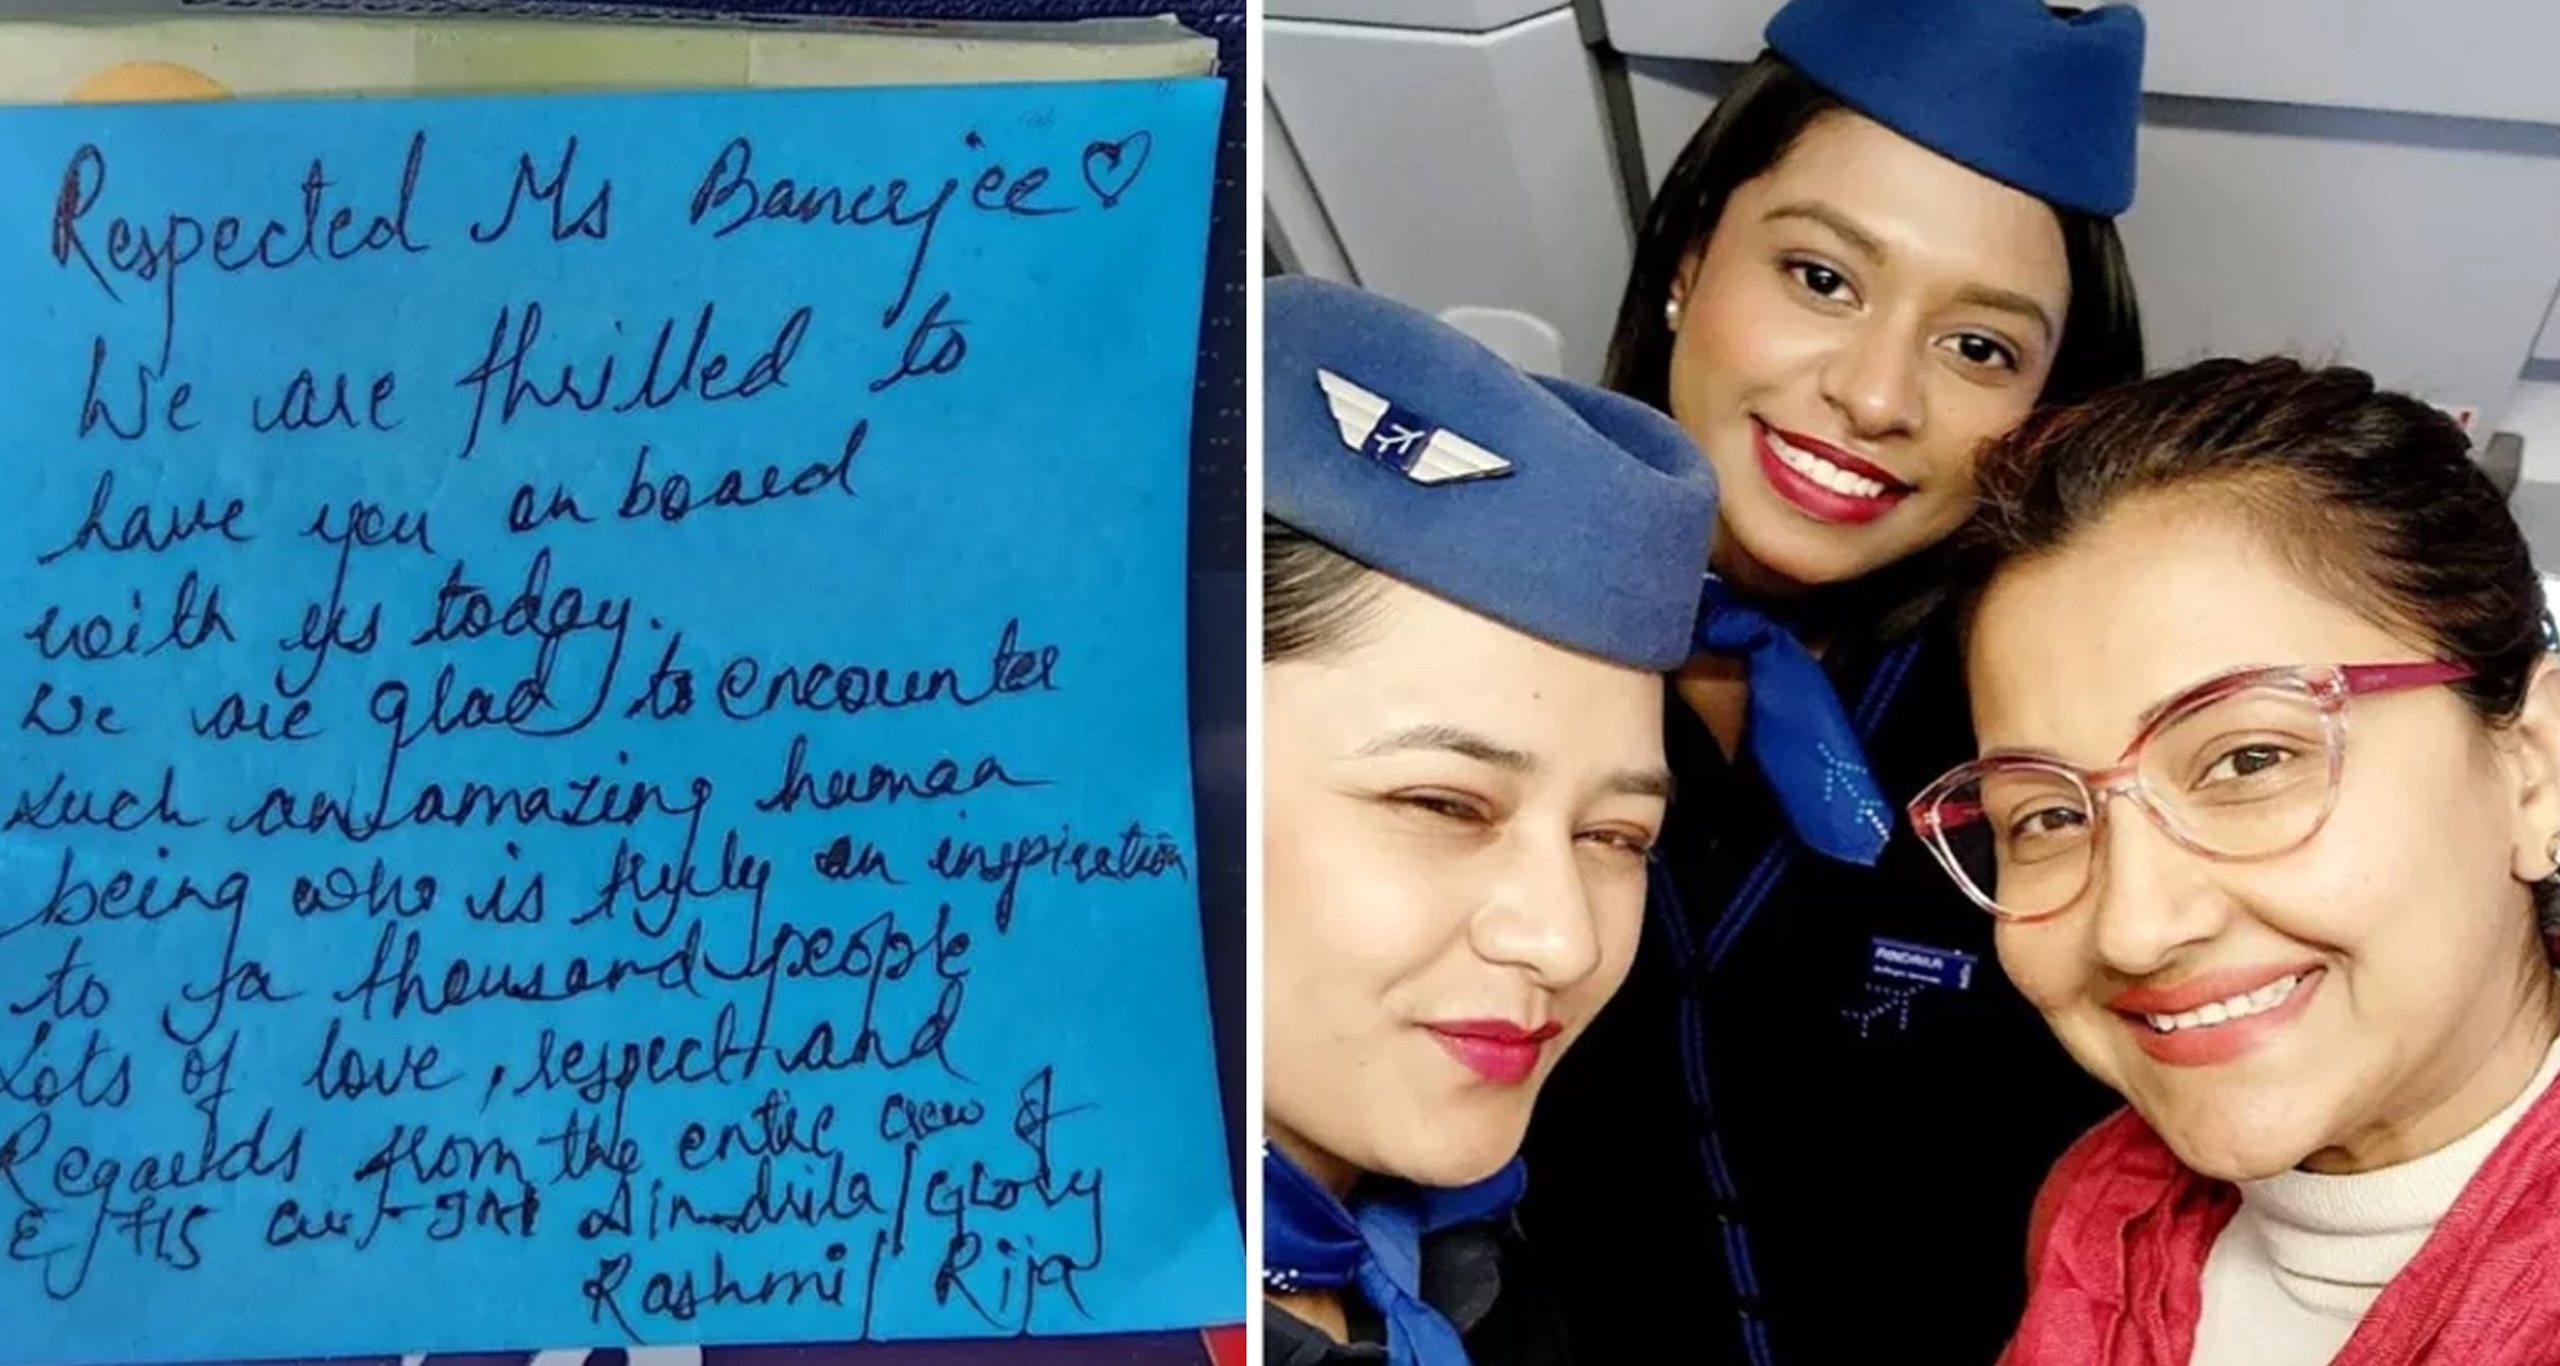 Respected Ms Banerjee
We are thrilled to
have you on board
with us today.
We are glad to encounter
such an amazing human
being who is truly an inspiration
to a thousand people
Lots of love, respect and
Regards from the entire crew of
Aindrila / Glory
Rashmi / Rija